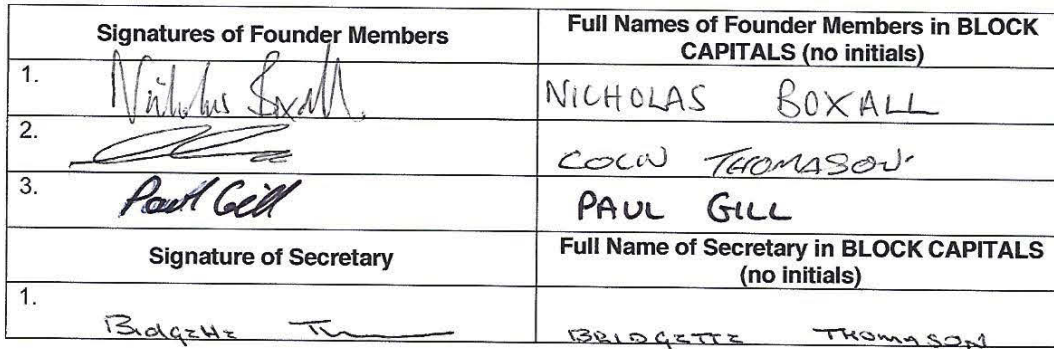 Signatures of Founder Members
Full Names of Founder Members in BLOCK
CAPITALS (no initials)
1. Nicholas Boxall.
NICHOLAS BOXALL
2.
COLIN THOMASON
3. Paul Gill
PAUL GILL
Signature of Secretary
Full Name of Secretary in BLOCK CAPITALS
(no initials)
1. Bridgette
BRIDGETTE THOMASON